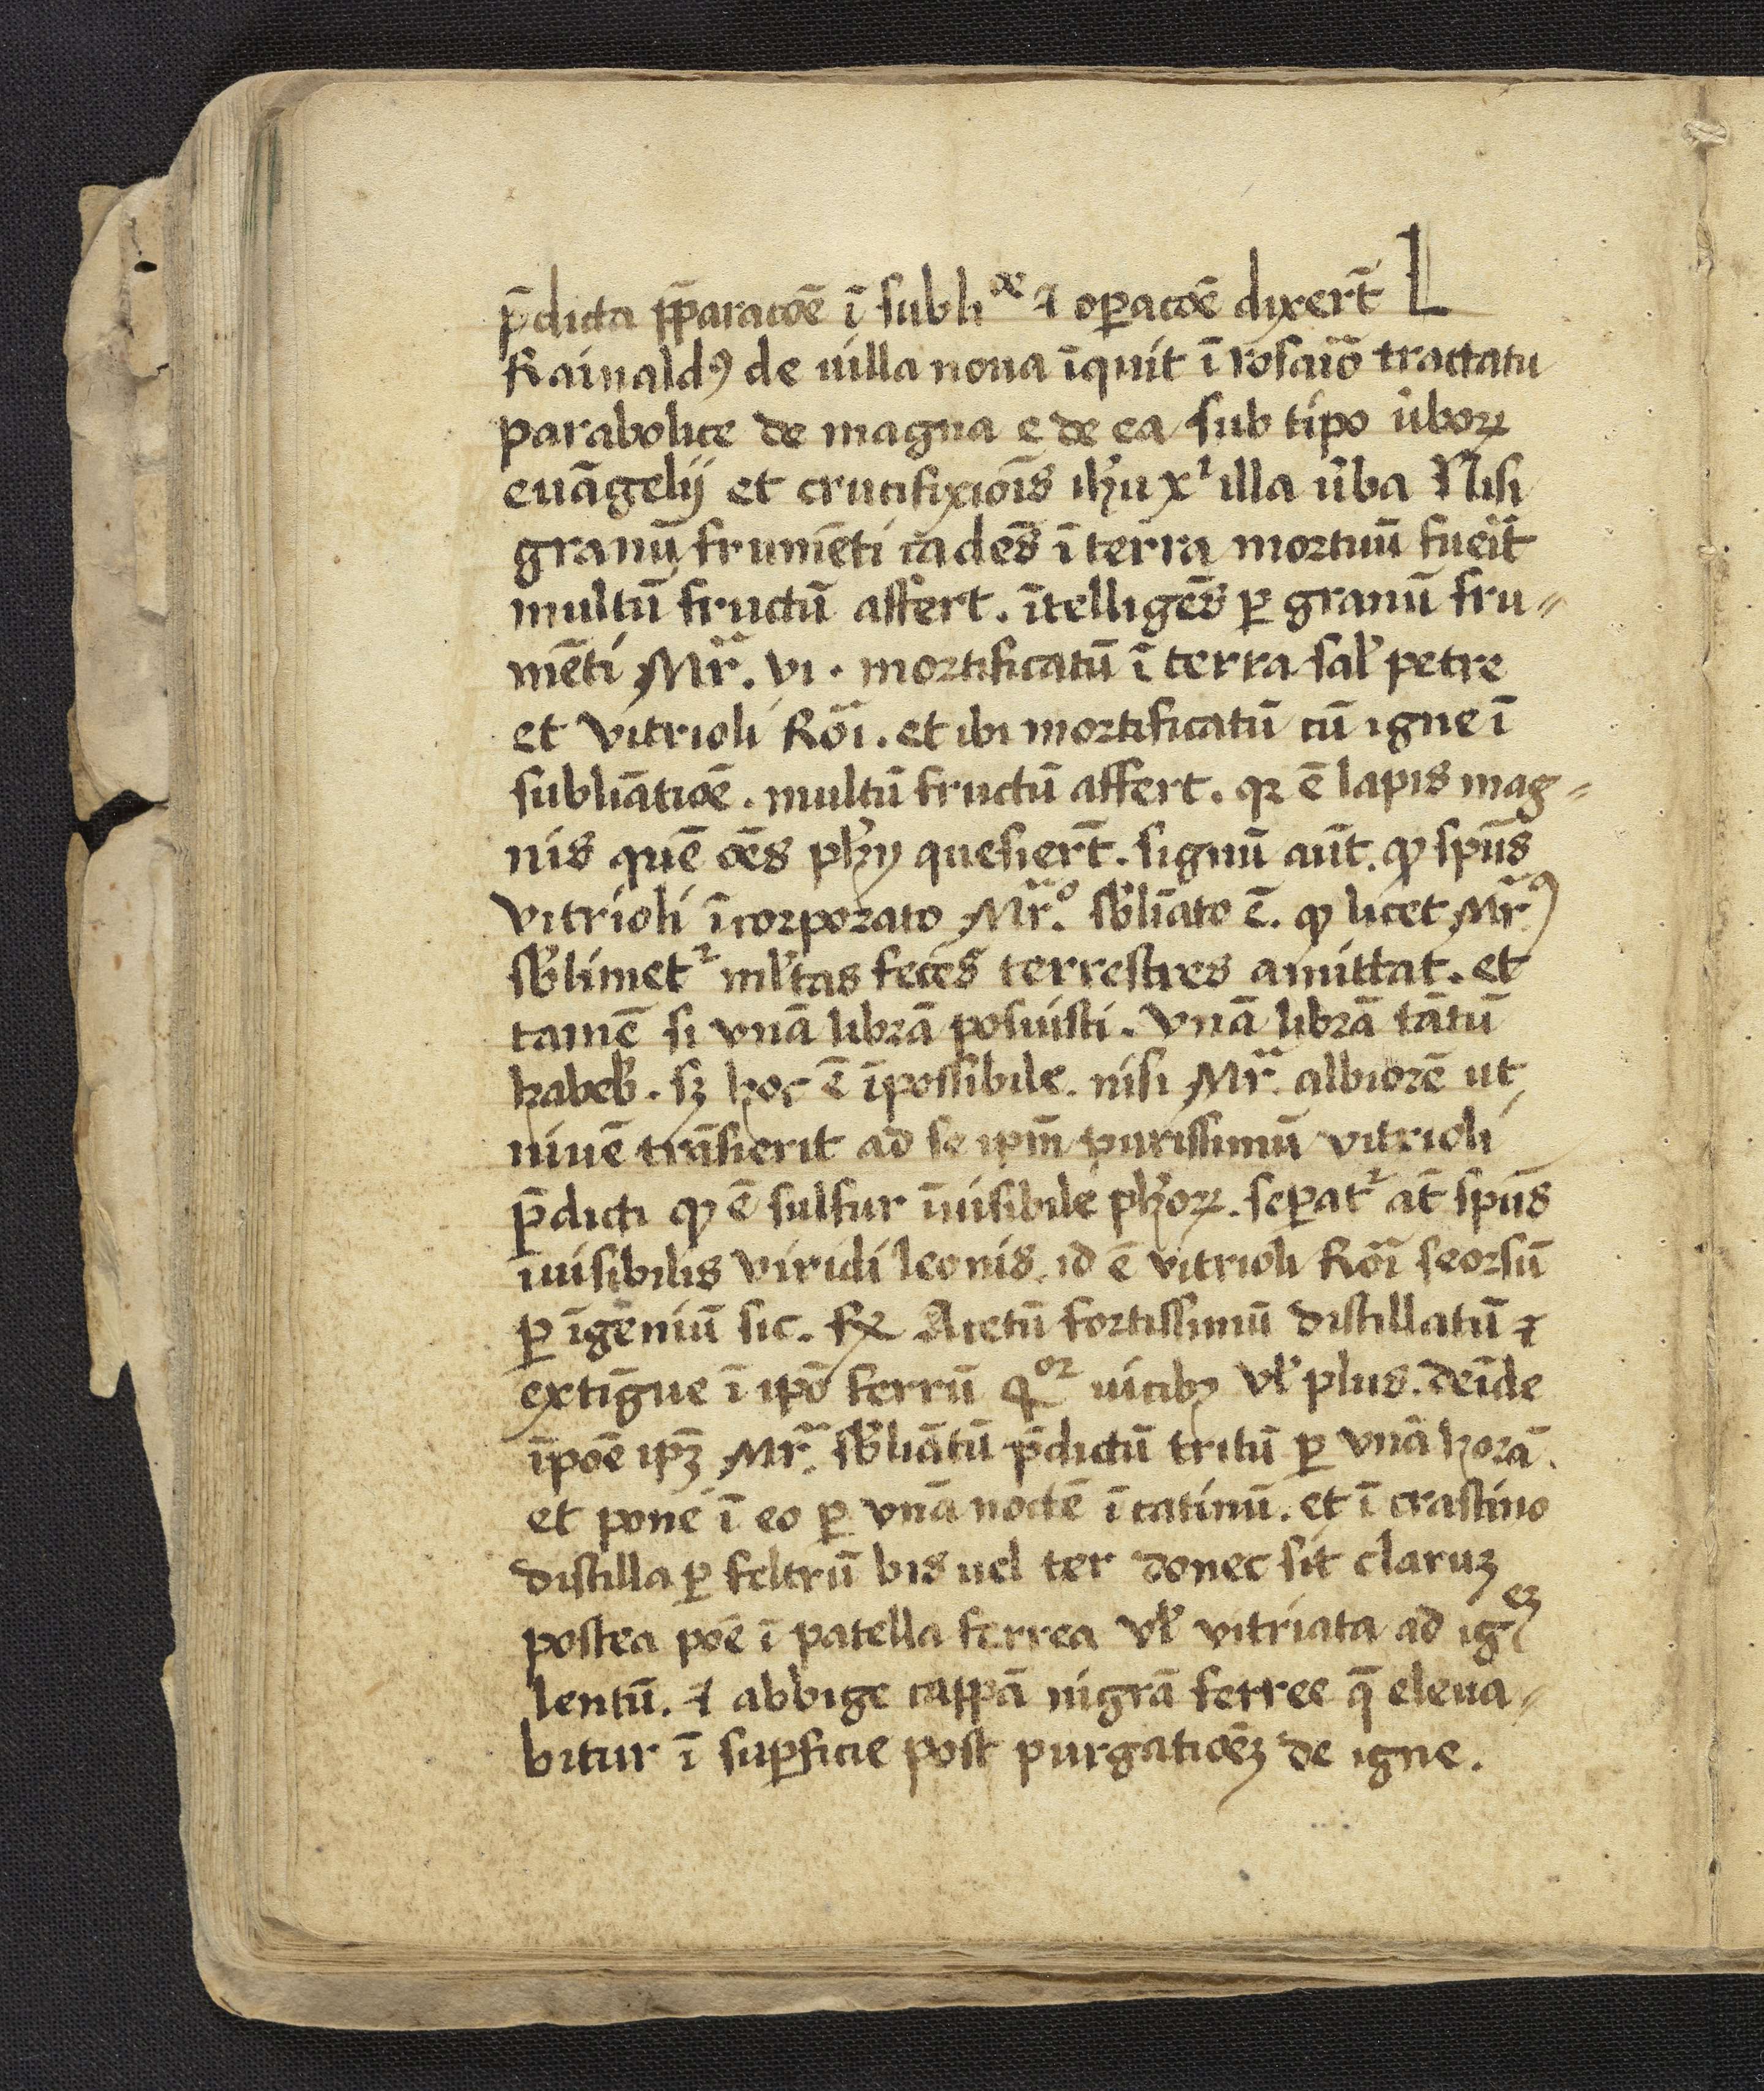 p̄dicta p̄paracōe ī subliōe ⁊ oꝑacōe dixer̄t L
Rainaldꝰ de uilla noua īquit ī rosaīo tractatu
parabolice de magna e de ea sub tipo ūboꝝ
euāgelij et crucifixioīs ihu xⁱ illa ūba Nisi
granū frumēti cadēs ī terra mortuū fuēit
multū fructū affert. ītelligēs ꝑ granū fru⸗
mēti Mr̄. vi. mortificatū ī terra salꝭ petre
et vitrioli Rōi. et ibi mortificatū cū igne ī
subliātiōe. multū fructū affert. qꝛ ē lapis mag⸗
nis quē ōes phy quesier̄t. signū aūt. ꝙ spūs
vitrioli īcorporato Mr̄ᵒ. sb̄liāto ē. ꝙ licet Mr̄ꝰ
sb̄limetᷣ ml̄tas feces terrestres amittat. et
tamē si vnā librā posuisti. vnā librā tātū
habeb̄. sꝫ hoc ē īpossibile. nisi Mr̄. albiorē ut
niuē trāsierit ad se ipm̄ purissimū vitrioli
p̄dicti ꝙ ē sulfur īuisibile phoꝝ. seꝑatᷣ at̄ spūs
īuisibilis viridi leonis. id ē vitrioli Rōi seorsū
ꝑ īgēniū sic. ℞ Acetū fortissimū distillatū ⁊
extīgue ī ipō ferrū qᵒʳ uicibꝫ vl̄ plus. deīde
īpōe ipꝫ Mr̄. sb̄liātū p̄dictū tritū ꝑ vnā horā.
et pone ī eo ꝑ vnā noctē ī catinū. et ī crastino
distilla ꝑ feltrū bis uel ter donec sit claruꝫ
postea pōe ī patella ferrea vl̄ vitriata ad igᵉꝫ
lentū. ⁊ abbige cappā nigrā ferree q̄ eleua⸗
bitur ī suꝑficie post purgatiōeꝫ de igne.